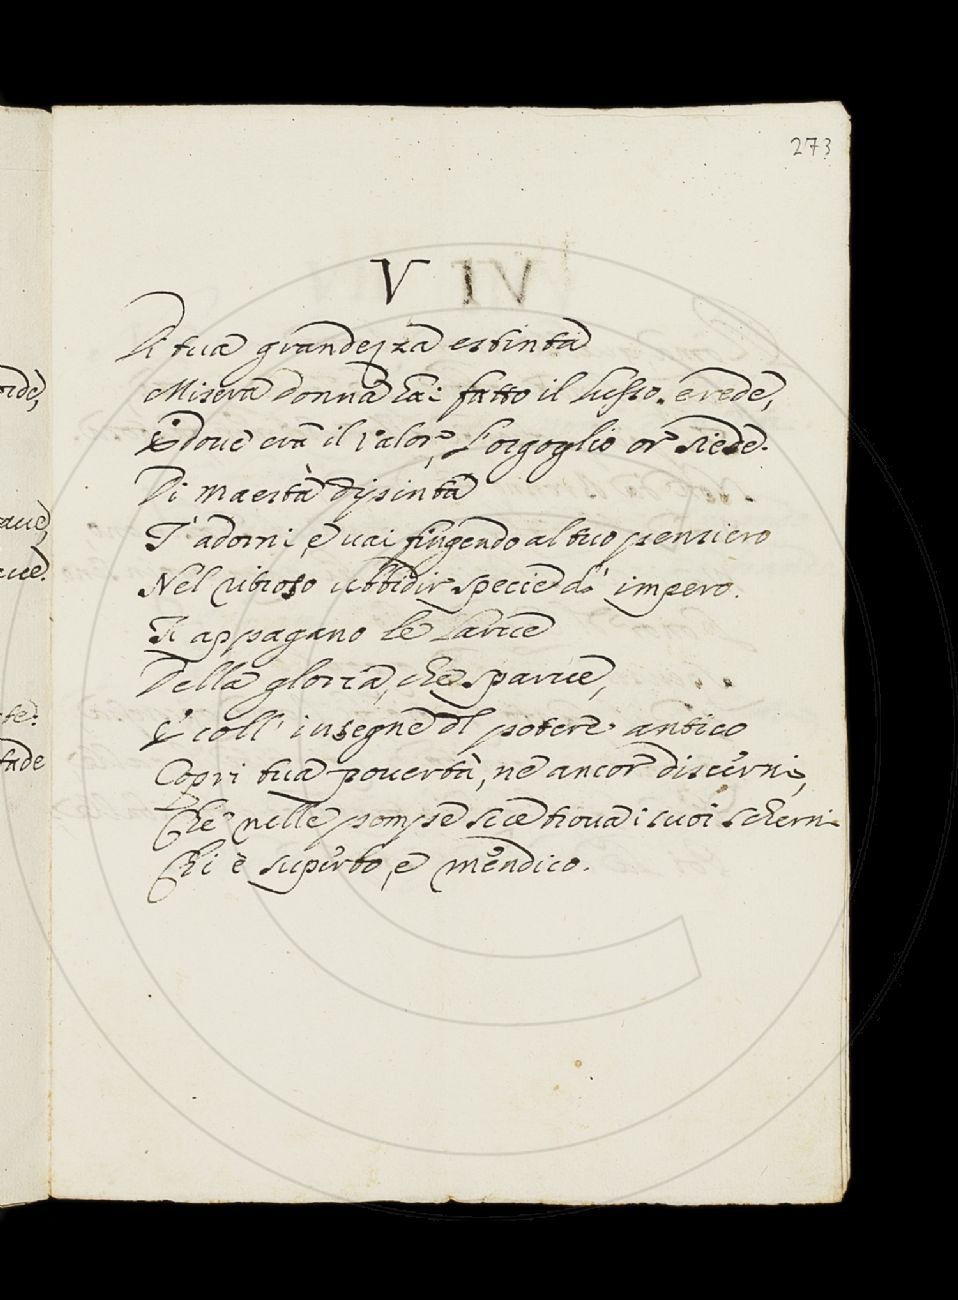 273
V
Di tua grandezza estinta
Misera donna ài fatto il lusso erede,
E doue era il valor, l'orgoglio or siede.
Di maestà dipinta
T'adorni, e uai fingendo al tuo pensiero
Nel uitioso ubbidir specie d'impero.
Ti appagano le larue
Della gloria, che sparue,
E coll'insegne del potere antico
Copri tua pouertà, nè ancor discerni,
Che nelle pompe sue troua i suoi scherni
Chi è superbo, e mendico.